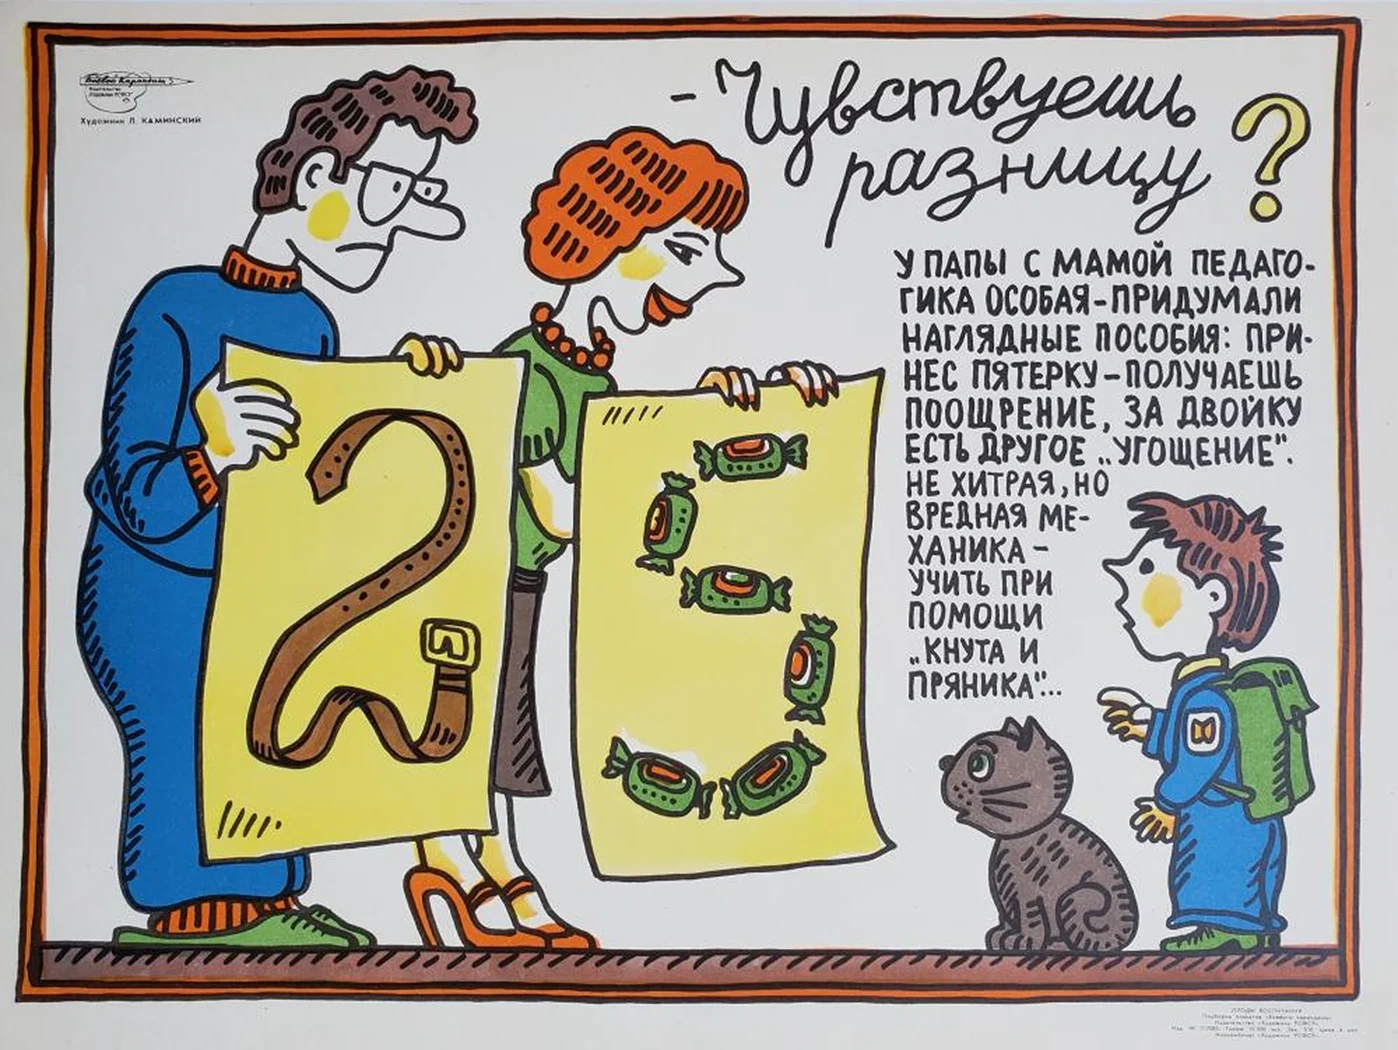 Боевой Карандаш
Художник Л. КАМИНСКИЙ
- Чувствуешь
разницу ?
У ПАПЫ С МАМОЙ ПЕДАГО-
ГИКА ОСОБАЯ-ПРИДУМАЛИ
НАГЛЯДНЫЕ ПОСОБИЯ: ПРИ-
НЕС ПЯТЕРКУ-ПОЛУЧАЕШЬ
ПООЩРЕНИЕ, ЗА ДВОЙКУ
ЕСТЬ ДРУГОЕ „УГОЩЕНИЕ".
НЕ ХИТРАЯ, НО
ВРЕДНАЯ МЕ-
ХАНИКА-
УЧИТЬ ПРИ
ПОМОЩИ
„КНУТА И
ПРЯНИКА"...
2
5